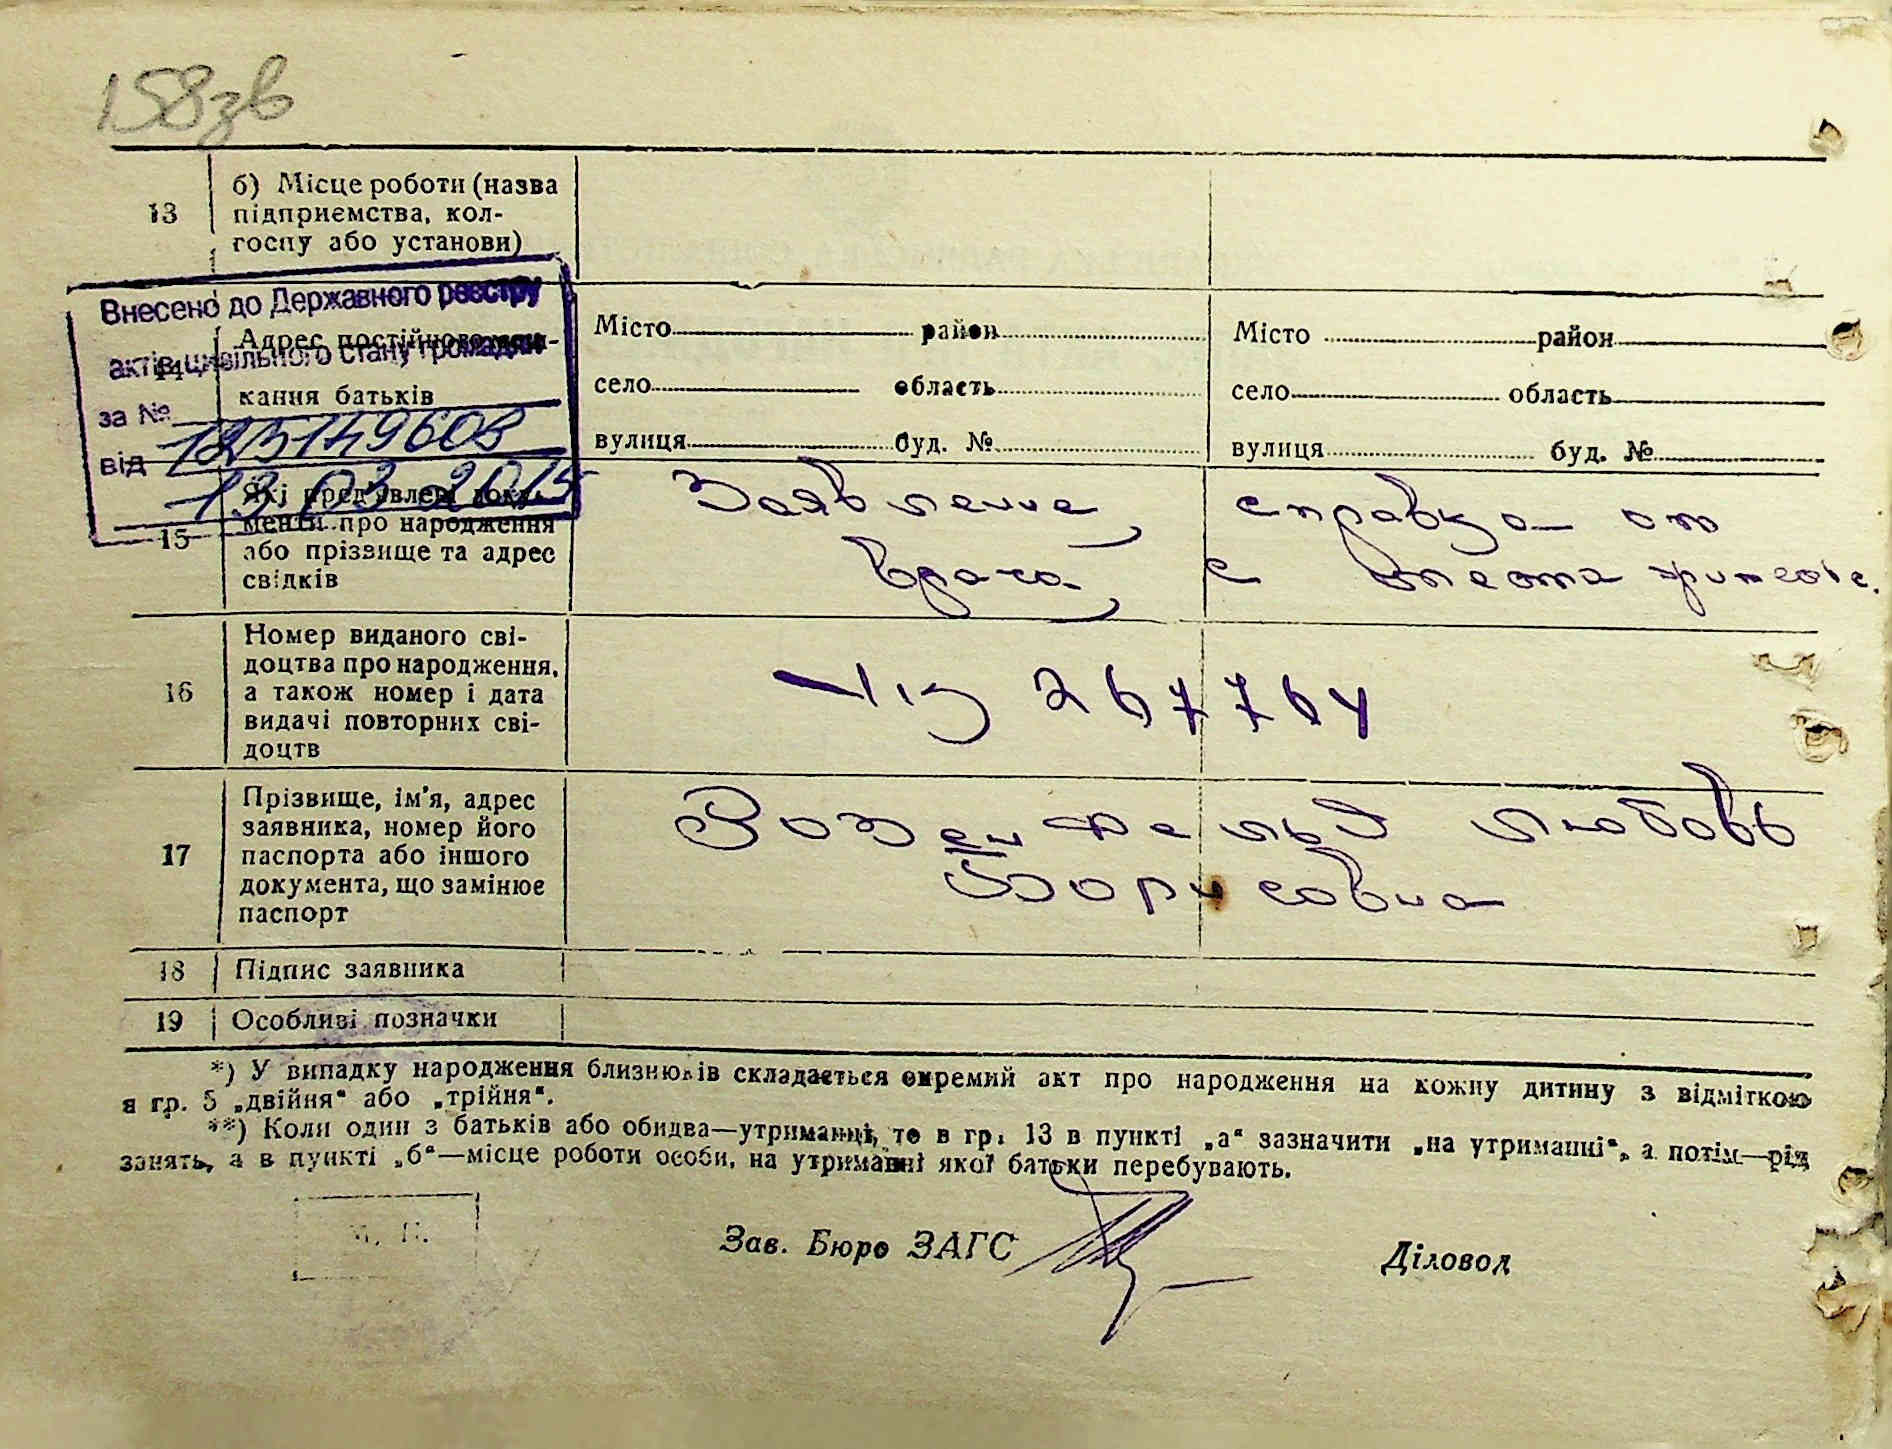 158зв
13
б) Місце роботи (назва
підприємства, кол-
госпу або установи)
Внесено до Державного реєстру
актів цивільного стану громадян
за № 123149608
від 13.03.2015
14
Адрес постійного меш-
кання батьків
Місто район
село область
вулиця буд. №
Місто район
село область
вулиця буд. №
15
Які пред'явлені доку-
менти про народження
або прізвище та адрес
свідків
Заявление, справка от
врача, с
16
Номер виданого сві-
доцтва про народження,
а також номер і дата
видачі повторних сві-
доцтв
267764
17
Прізвище, ім'я, адрес
заявника, номер його
паспорта або іншого
документа, що замінює
паспорт
Розенфельд Любовь
Борисовна
18
Підпис заявника
19
Особливі позначки
*) У випадку народження близнюків складається окремий акт про народження на кожну дитину з відміткою
в гр. 5 „двійня“ або „трійня“.
**) Коли один з батьків або обидва—утриманці, то в гр. 13 в пункті „а“ зазначити „на утриманні“, а потім—рід
занять, а в пункті „б“—місце роботи особи, на утриманні якої батьки перебувають.
М. П.
Зав. Бюро ЗАГС
Діловод